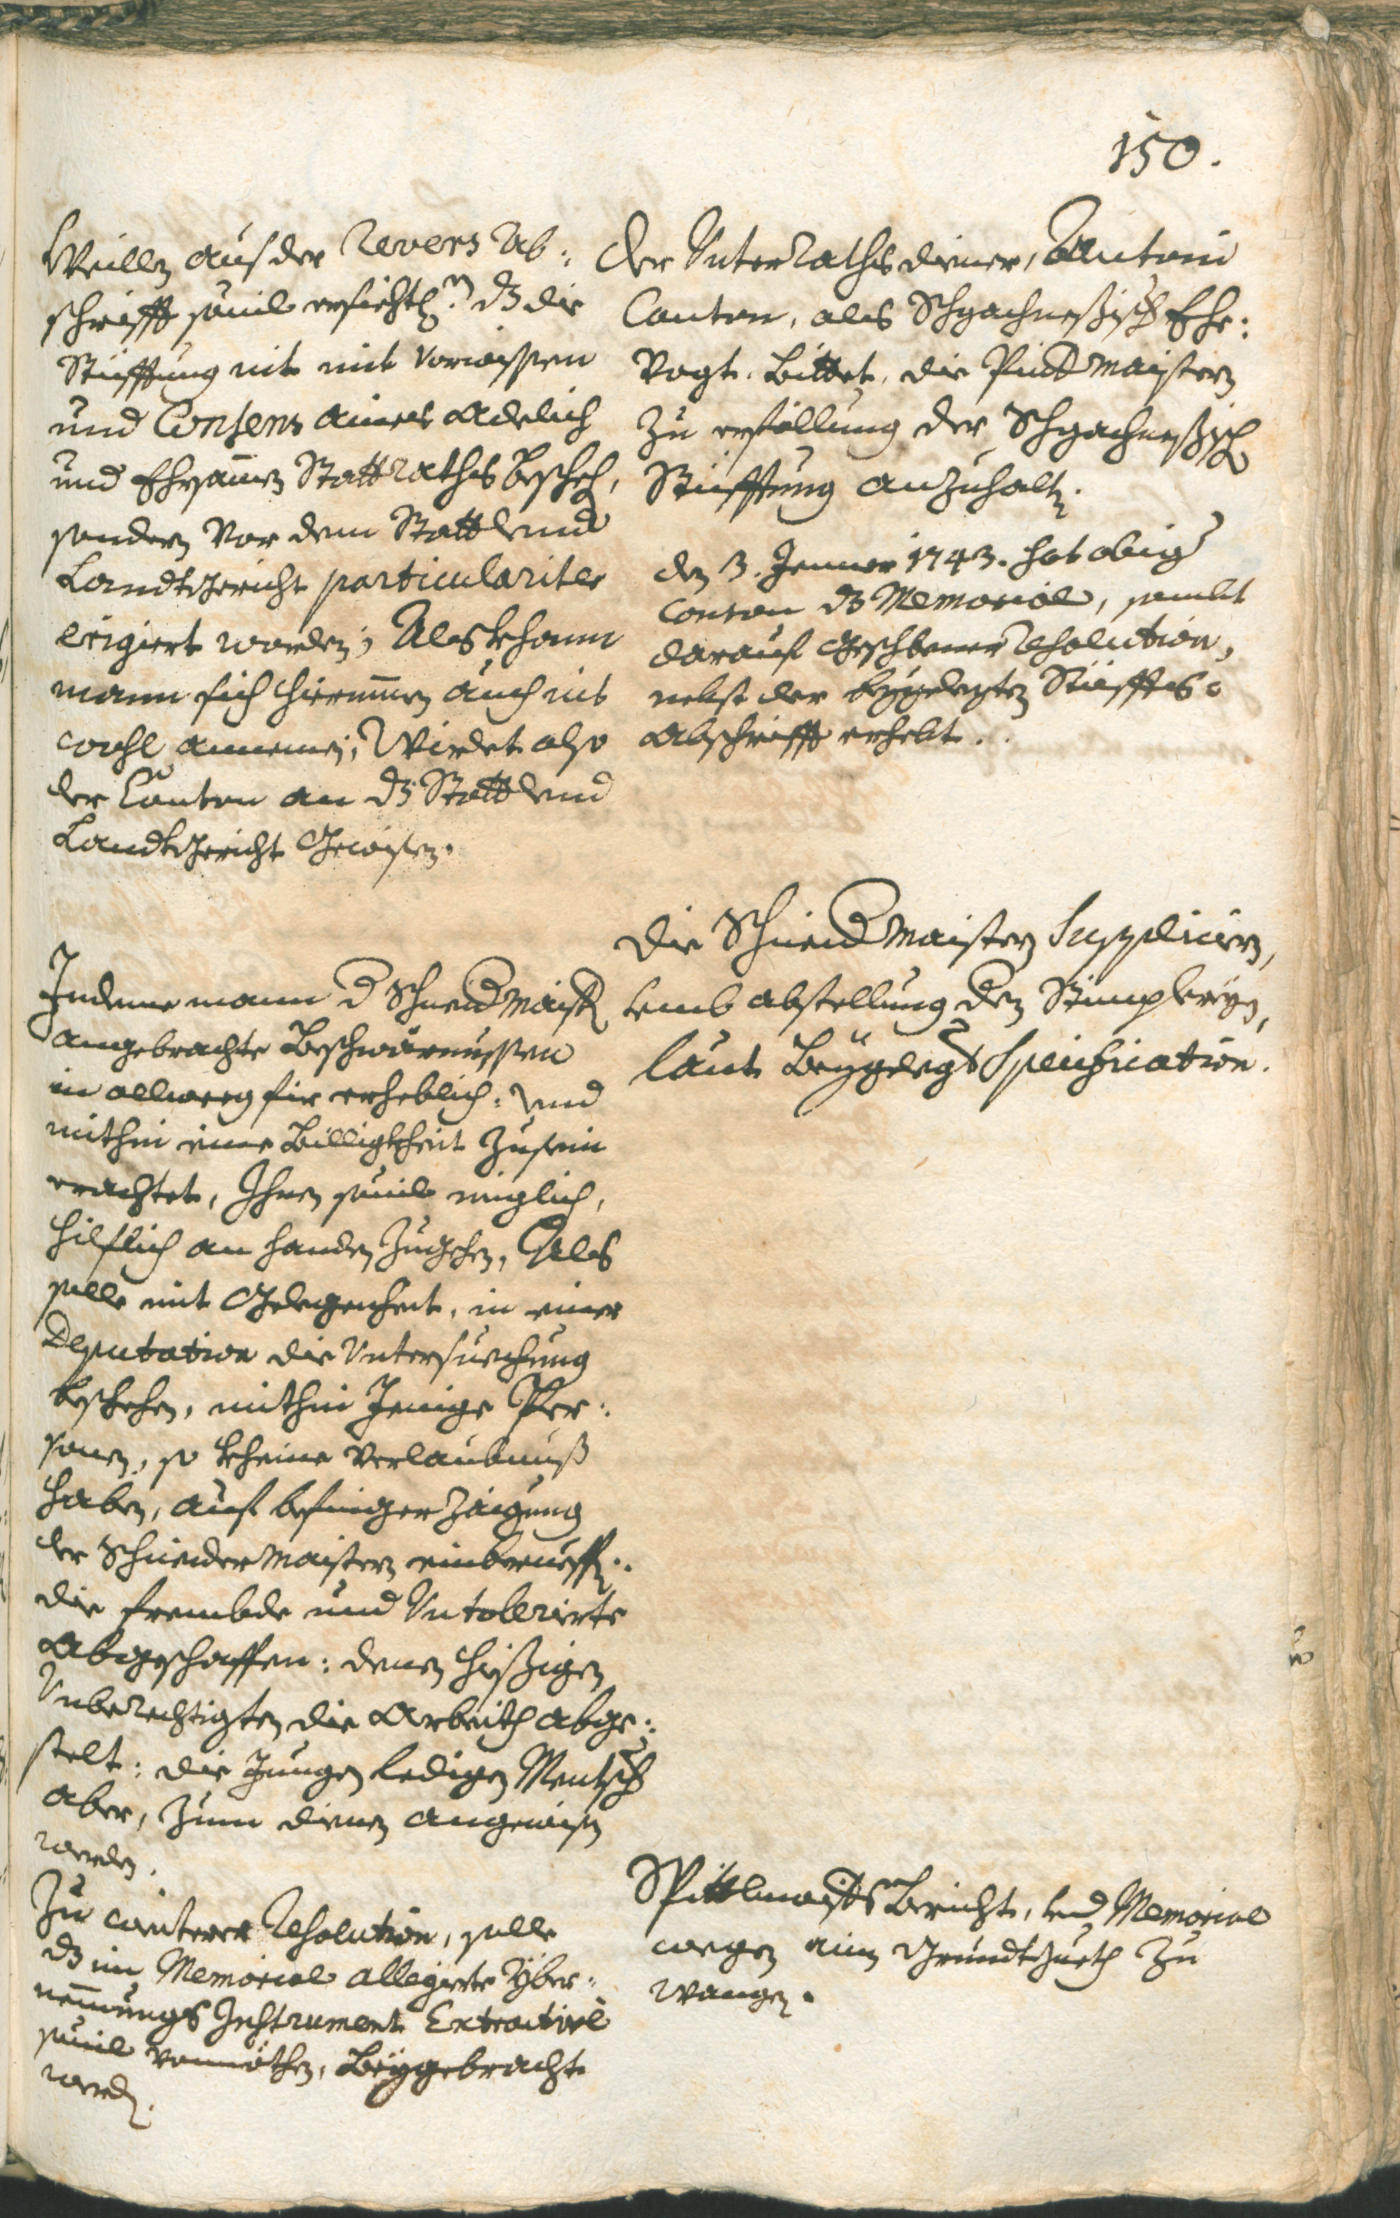 150.
Weillen auß der Revers Ab:
schrifft souil ersichtl: dz die
Stüfftung nit mit Vorwissen
und Consens aines Adelich
und Ehrsamen Stattrathß beschehen,
sondern Vor dem Statt und
Landtgericht particulariter
erigiert worden; Alß khann
mann sich hierumen auch nit
wohl annemen; Wirdet also
der Canton an dz Statt und
Landtgericht Gewisen.
Indeme mann d Schneid Maistern
angebrachte Beschwärnussen
in allweeg für erheblich: und
mithin eine Billigkheit zusein
erachtet, Ihnen souil miglich,
hilflich an handen zugehen, Alß
solle mit Gelegenheit, in einer
Deputation die Untersuechung
beschehen, mithin Jenige Per:
sonen, so kheine Verlaubnuß
haben, auf
der Schneider Maistern einberueffen.
die frembde und Untolerierte
Abgeschaffen: denen hießigen
Unberechtigten die Arbeith abge:
stelt: die Jungen ledigen Mentscher
aber, zum dienen angewisen
werden.
Zu weiterer Resolution, solle
dz im Memorial allegierte Yber:
nemmungs Instrument Extractive
souil vonnöthen, Beygebracht
werden.
Der Unterrathsdiener, Antoni
Canton, als Schgachneßisch Ehe:
Vogt. Bittet, die Pindt Maistern
Zu erfüllung der Schgachneßisch
Stüfftung anzuhalten.
den 3. Jenner 1743. hat obiger
Canton dz Memorial, sambt
darauf Geschbener Resolution,
nebst der beygelegten Stüffts:
Abschrifft erhebt.
Die Schneid Maistern Supplicieren,
umb abstellung den Stimplereyen,
laut Beygelegt Specification.
Spittlmaisters Bericht, und Memorial
wegen aines Grundtstuckh zu
Wangen.